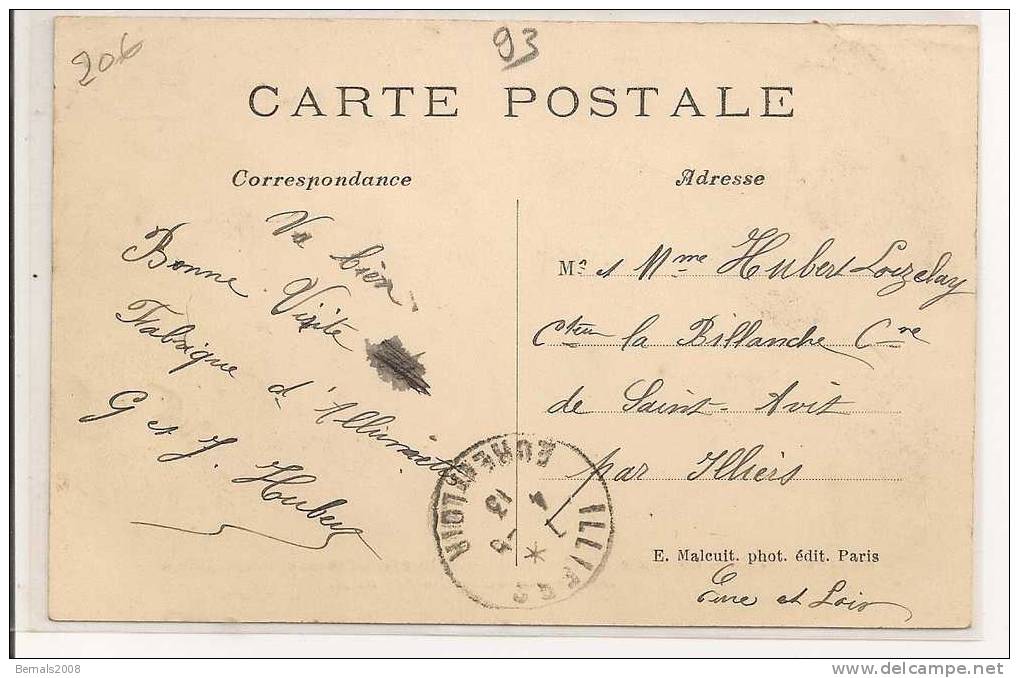 206
93
CARTE POSTALE
Correspondance
Va bien
Bonne Visite
Fabrique d'Allumettes
G et J. Hubert
Adresse
M. et Mme Hubert Loizelay
la Billanche Cne
de Saint-Avit
par Illiers
E. Malcuit. phot. édit. Paris
Eure et Loir
ILLIERS
EURE ET LOIR
13
Bernals2008
delcampe.net